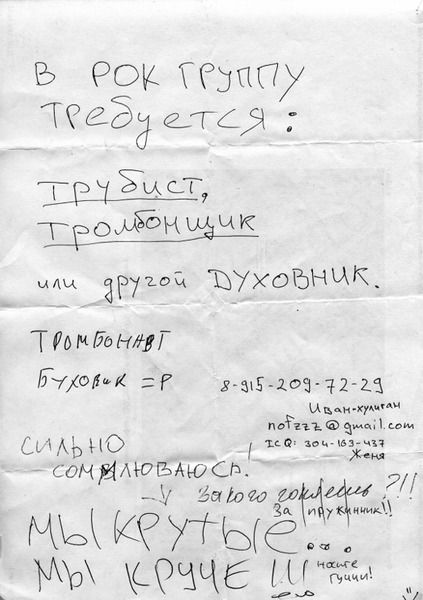 В РОК ГРУППУ
ТРЕБУЕТСЯ:
ТРУБИСТ,
ТРОМБОНЩИК
или другой ДУХОВНИК.
ТРОМБОНАВТ
БУХОВИК =P
8-915-209-72-29
Иван-хулиган
notzzz@gmail.com
ICQ: 304-163-437
Женя
СИЛЬНО
СОМЛЮВАЮСЬ.
За кого ?!!
За пружинник!!
МЫ КРУТЫЕ...
МЫ КРУЧЕ !!!